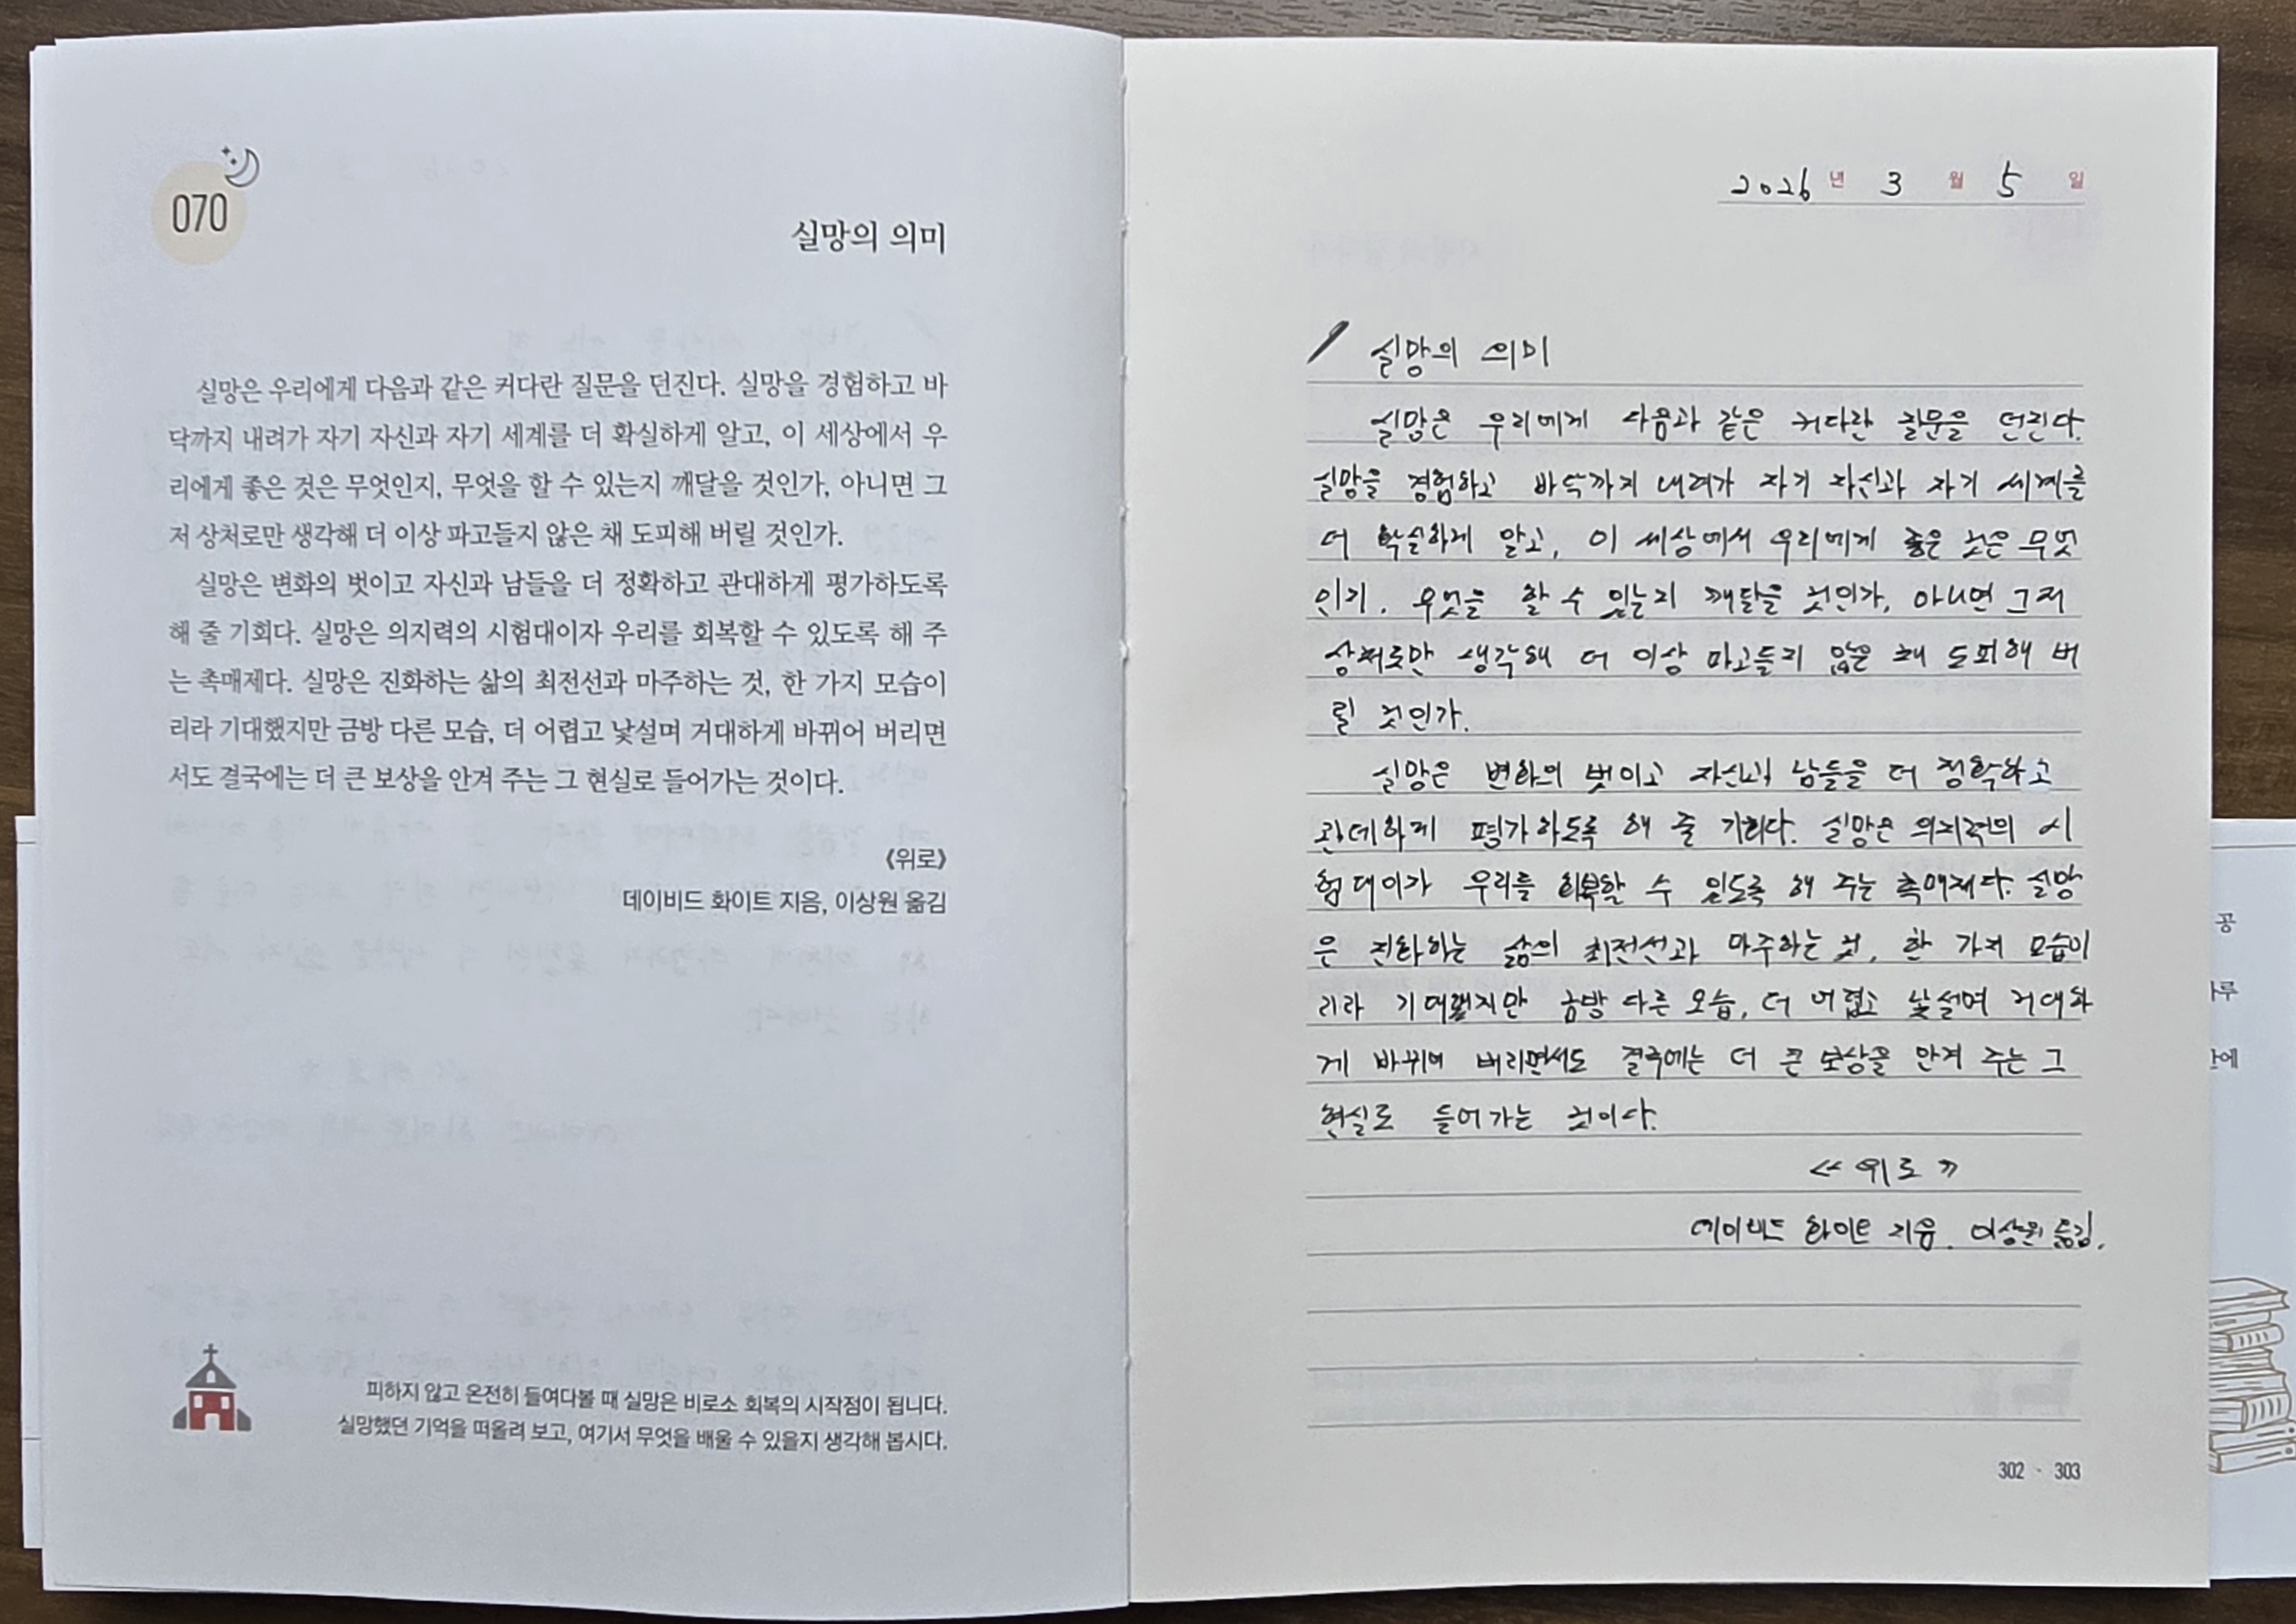 070
실망의 의미
실망은 우리에게 다음과 같은 커다란 질문을 던진다. 실망을 경험하고 바
닥까지 내려가 자기 자신과 자기 세계를 더 확실하게 알고, 이 세상에서 우
리에게 좋은 것은 무엇인지, 무엇을 할 수 있는지 깨달을 것인가, 아니면 그
저 상처로만 생각해 더 이상 파고들지 않은 채 도피해 버릴 것인가.
실망은 변화의 벗이고 자신과 남들을 더 정확하고 관대하게 평가하도록
해 줄 기회다. 실망은 의지력의 시험대이자 우리를 회복할 수 있도록 해 주
는 촉매제다. 실망은 진화하는 삶의 최전선과 마주하는 것, 한 가지 모습이
리라 기대했지만 금방 다른 모습, 더 어렵고 낯설며 거대하게 바뀌어 버리면
서도 결국에는 더 큰 보상을 안겨 주는 그 현실로 들어가는 것이다.
《위로》
데이비드 화이트 지음, 이상원 옮김
피하지 않고 온전히 들여다볼 때 실망은 비로소 회복의 시작점이 됩니다.
실망했던 기억을 떠올려 보고, 여기서 무엇을 배울 수 있을지 생각해 봅시다.
2026 년 3 월 5 일
실망의 의미
실망은 우리에게 다음과 같은 커다란 질문을 던진다.
실망을 경험하고 바닥까지 내려가 자기 자신과 자기 세계를
더 확실하게 알고, 이 세상에서 우리에게 좋은 것은 무엇
인지, 무엇을 할 수 있는지 깨달을 것인가, 아니면 그저
상처로만 생각해 더 이상 파고들지 않은 채 도피해 버
릴 것인가.
실망은 변화의 벗이고 자신과 남들을 더 정확하고
관데하게 평가하도록 해 줄 기회다. 실망은 의지력의 시
험대이자 우리를 회복할 수 있도록 해 주는 촉매제다. 실망
은 진화하는 삶의 최전선과 마주하는 것, 한 가지 모습이
리라 기대했지만 금방 다른 모습, 더 어렵고 낯설며 거대하
게 바뀌어 버리면서도 결국에는 더 큰 보상을 안겨 주는 그
현실로 들어가는 것이다.
<< 위로 >>
데이비드 화이트 지음, 이상원 옮김.
302 · 303
공
에